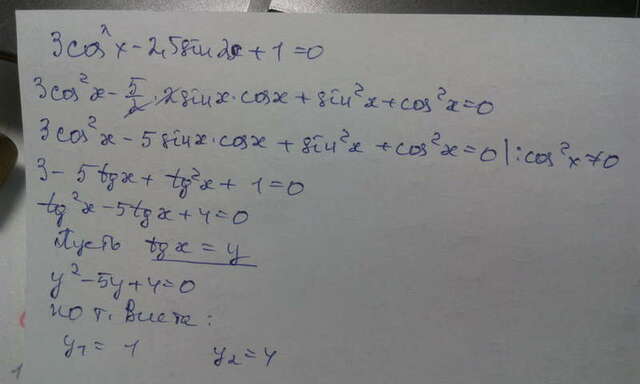 3cos²x - 2,5sin2x + 1 = 0
3cos²x - 5/2 · 2sinx·cosx + sin²x + cos²x = 0
3cos²x - 5sinx·cosx + sin²x + cos²x = 0 |: cos²x ≠ 0
3 - 5tgx + tg²x + 1 = 0
tg²x - 5tgx + 4 = 0
Пусть tgx = y
y² - 5y + 4 = 0
по т. Виета:
y₁ = 1 y₂ = 4
1